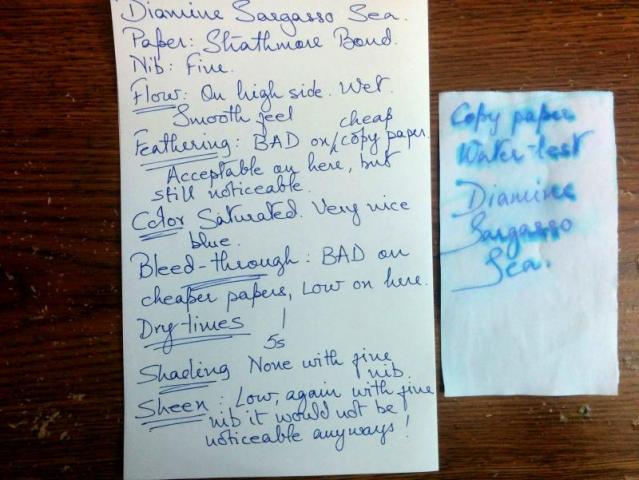 Diamine Sargasso Sea.
Paper: Strathmore Bond.
Nib: Fine.
Flow: On high side. Wet.
Smooth feel
Feathering: BAD on cheap copy paper.
Acceptable on here, but
still noticeable.
Color Saturated. Very nice
blue.
Bleed-through: BAD on
cheaper papers, Low on here.
Dry-times
5s
Shading None with fine
nib.
Sheen: Low, again with fine
nib it would not be
noticeable anyways!
Copy paper
Water-test
Diamine
Sargasso
Sea.